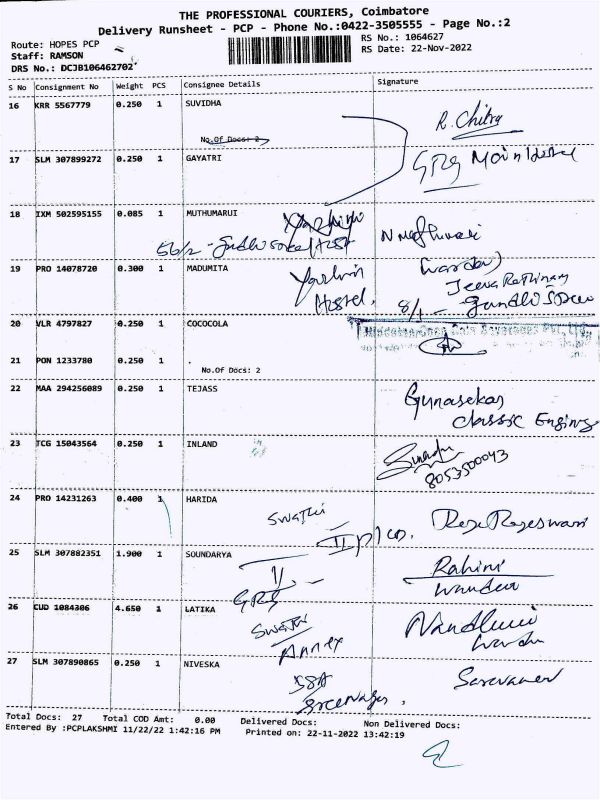 THE PROFESSIONAL COURIERS, Coimbatore
Delivery Runsheet - PCP - Phone No.:0422-3505555 - Page No.:2
Route: HOPES PCP
Staff: RAMSON
DRS No.: DCJB106462702
RS No.: 1064627
RS Date: 22-Nov-2022
S No Consignment No Weight PCS Consignee Details Signature
16 KRR 5567779 0.250 1 SUVIDHA
R. Chitra
No.Of Docs: 2
17 SLM 307899272 0.250 1 GAYATRI
GRG Main Hostel
18 IXM 502595155 0.085 1 MUTHUMARUI
56/2 -
19 PRO 14078720 0.300 1 MADUMITA
Yashini (warden)
Hostel. 8/1 - Gandhi
20 VLR 4797827 0.250 1 COCOCOLA
21 PON 1233780 0.250 1 .
No.Of Docs: 2
22 MAA 294256089 0.250 1 TEJASS
Gunasekar
classic
23 TCG 15043564 0.250 1 INLAND
8053500043
24 PRO 14231263 0.400 1 HARIDA
Swathi
25 SLM 307882351 1.900 1 SOUNDARYA
Rahini
GRG warden
26 CUD 1084306 4.650 1 LATIKA
Swathi Nandhini
Annex warden
27 SLM 307890865 0.250 1 NIVESKA
58A Saravanan
Sreenagar,
Total Docs: 27 Total COD Amt: 0.00 Delivered Docs: Non Delivered Docs:
Entered By :PCPLAKSHMI 11/22/22 1:42:16 PM Printed on: 22-11-2022 13:42:19